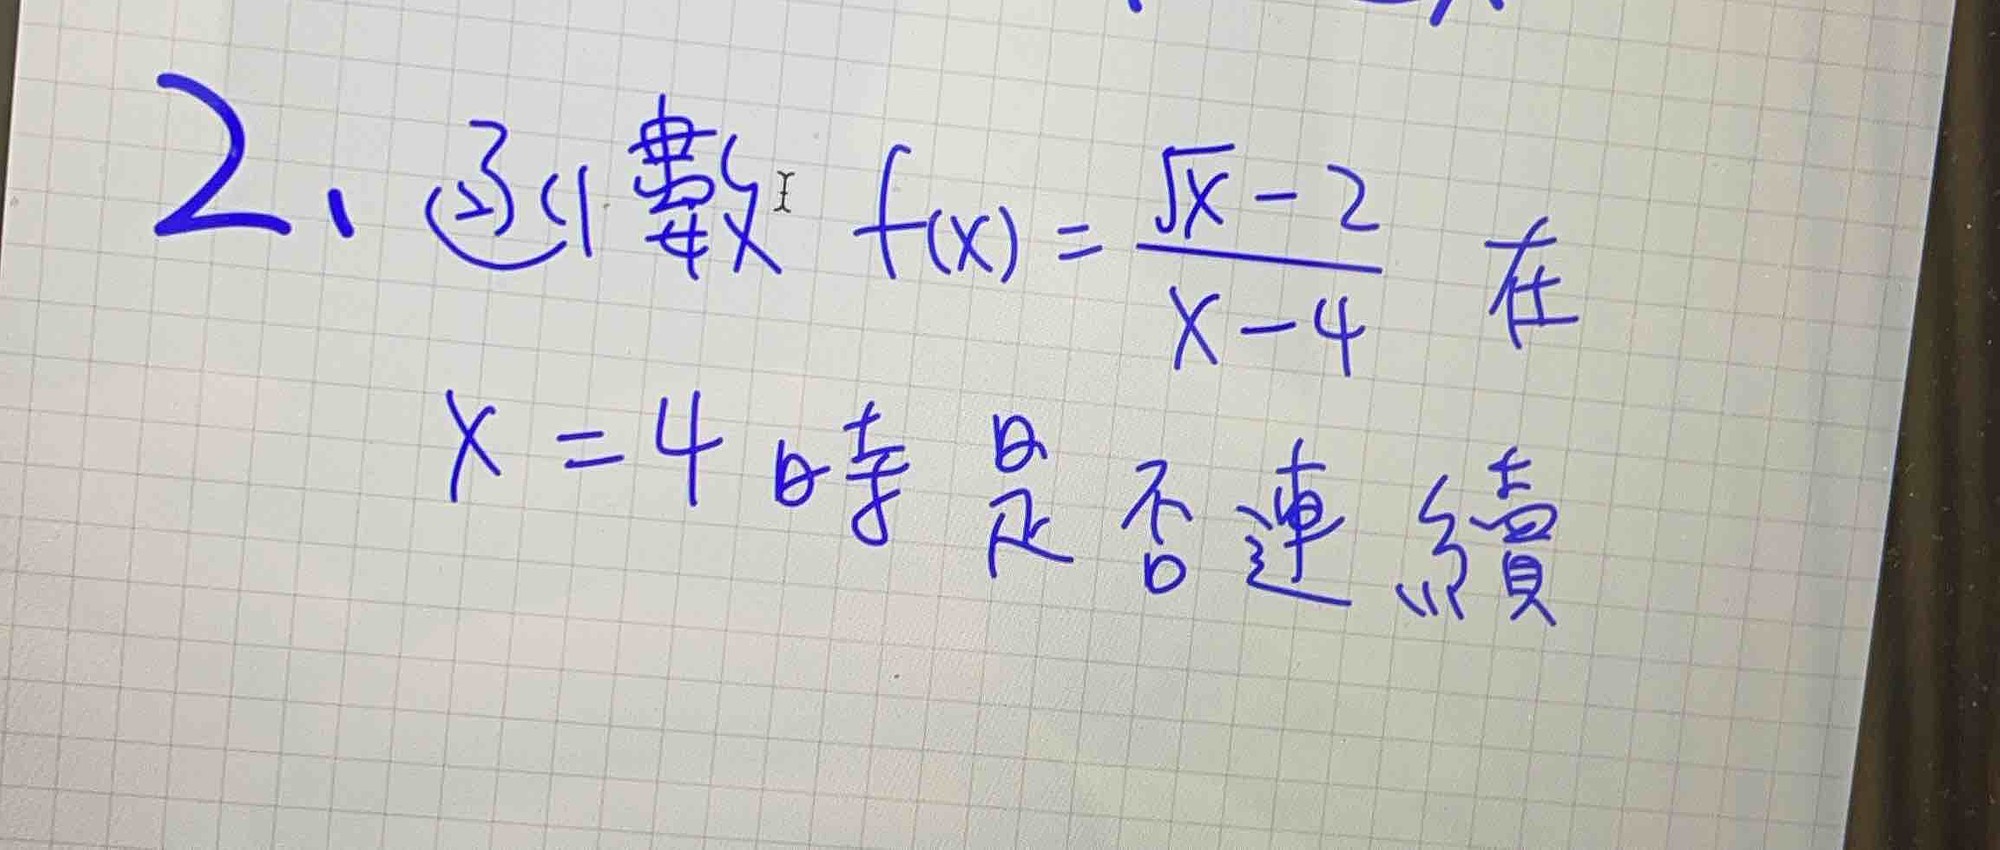 2、函數 f(x) = \frac{√x - 2}{x - 4} 在
x = 4 時是否連續